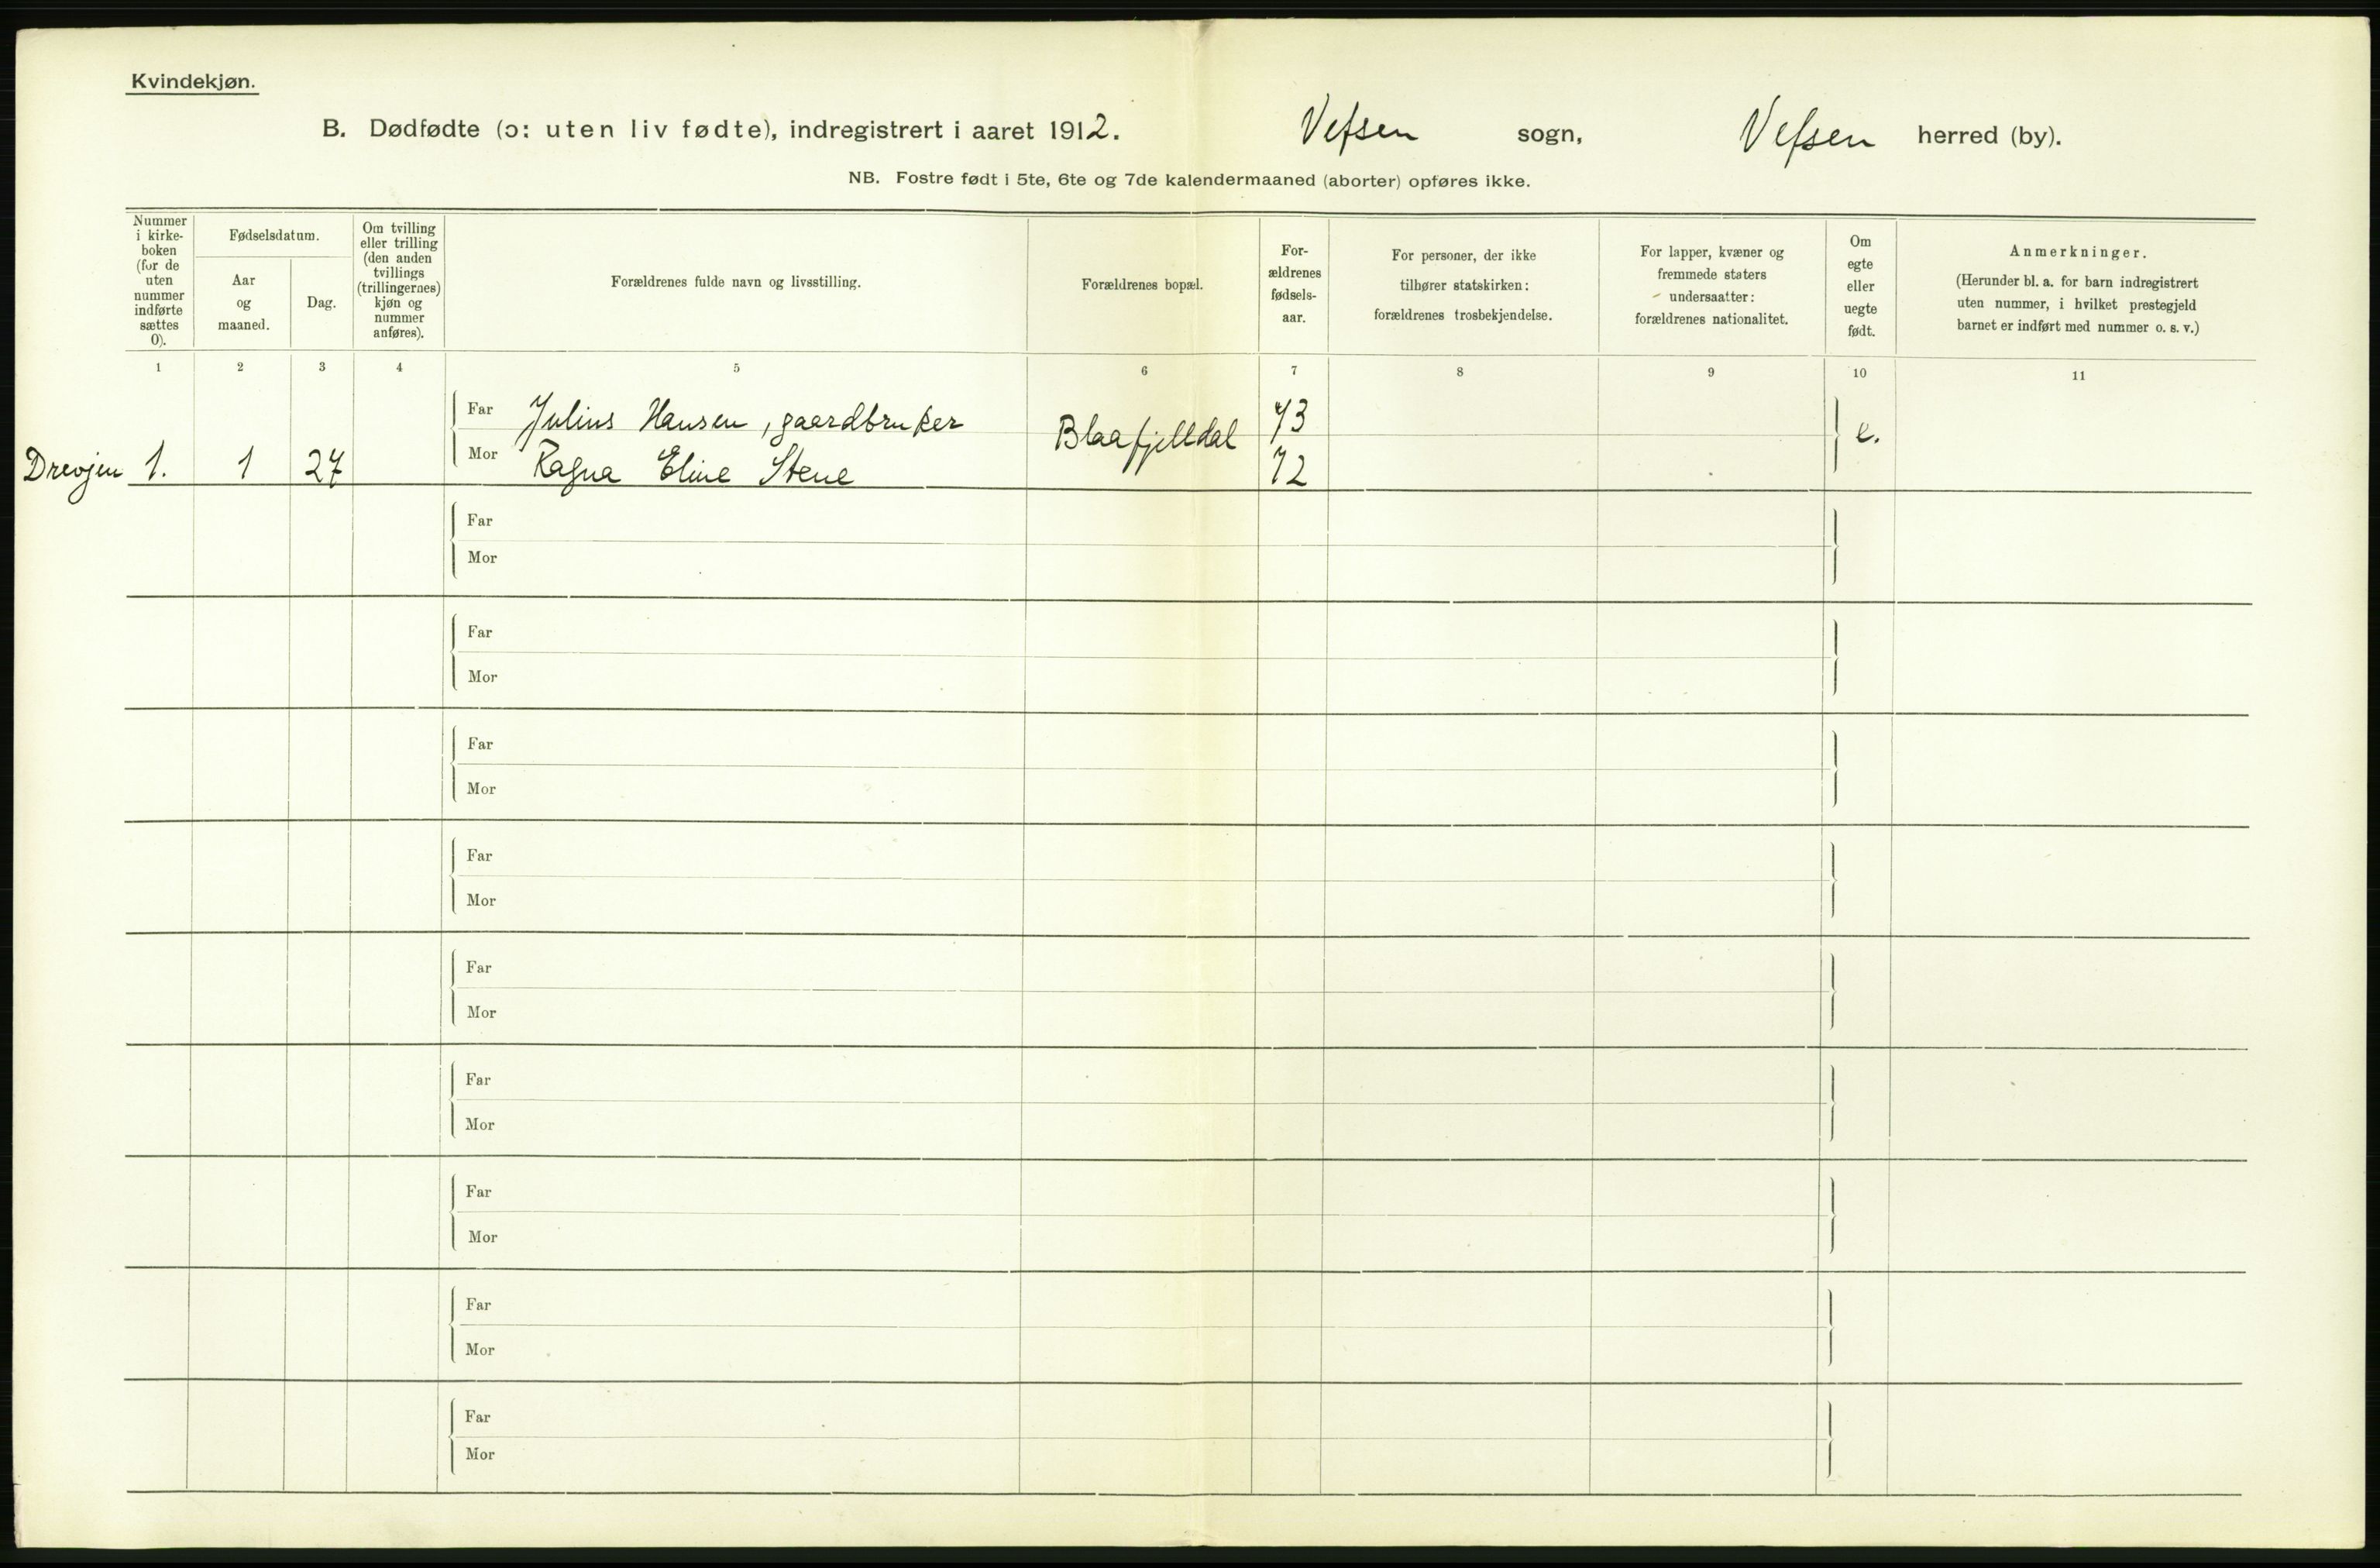 Kvindekjøn.
B. Dødfødte (ɔ: uten liv fødte), indregistrert i aaret 1912. Vefsen sogn, Vefsen herred (by).
NB. Fostre født i 5te, 6te og 7de kalendermaaned (aborter) opføres ikke.
Nummer
i kirke-
boken
(for de
uten
nummer
indførte
sættes
0).
Fødselsdatum.
Aar
og
maaned.
Dag.
Om tvilling
eller trilling
(den anden
tvillings
(trillingernes)
kjøn og
nummer
anføres).
Forældrenes fulde navn og livsstilling.
Forældrenes bopæl.
For-
ældrenes
fødsels-
aar.
For personer, der ikke
tilhører statskirken:
forældrenes trosbekjendelse.
For lapper, kvæner og
fremmede staters
undersaatter:
forældrenes nationalitet.
Om
egte
eller
uegte
født.
Anmerkninger.
(Herunder bl. a. for barn indregistrert
uten nummer, i hvilket prestegjeld
barnet er indført med nummer o. s. v.)
1 2 3 4 5 6 7 8 9 10 11
Far Julius Hansen, gaardbruker Blaafjelldal 73 e.
Drevjen 1. 1 27 Mor Ragna Eline Stene 72
Far
Mor
Far
Mor
Far
Mor
Far
Mor
Far
Mor
Far
Mor
Far
Mor
Far
Mor
Far
Mor